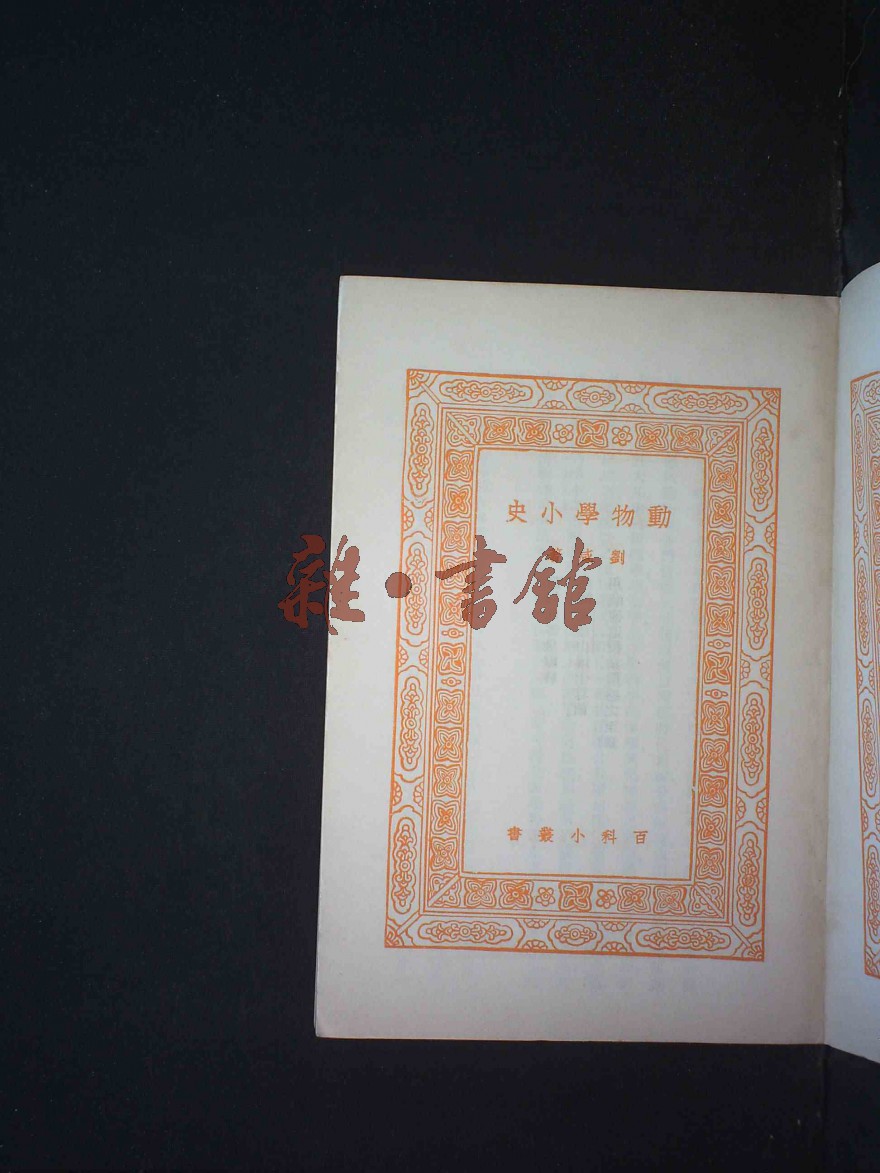 動物學小史
劉
雜·書館
百科小叢書